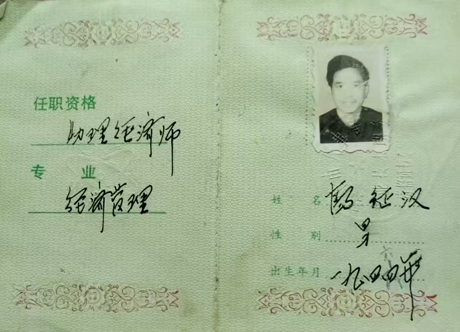 任职资格
助理经济师
专 业
经济管理
姓 名 征汉
性 别 男
出生年月 一九四四年